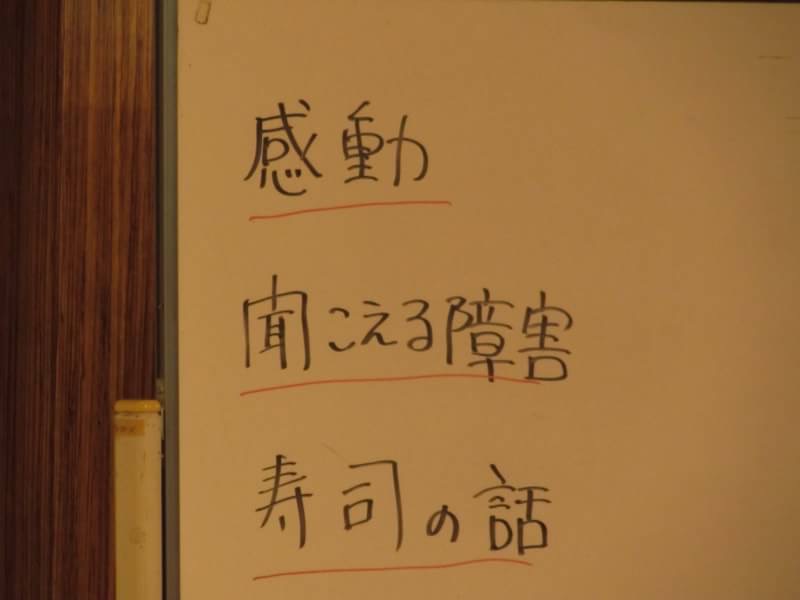 感動
聞こえる障害
寿司の話